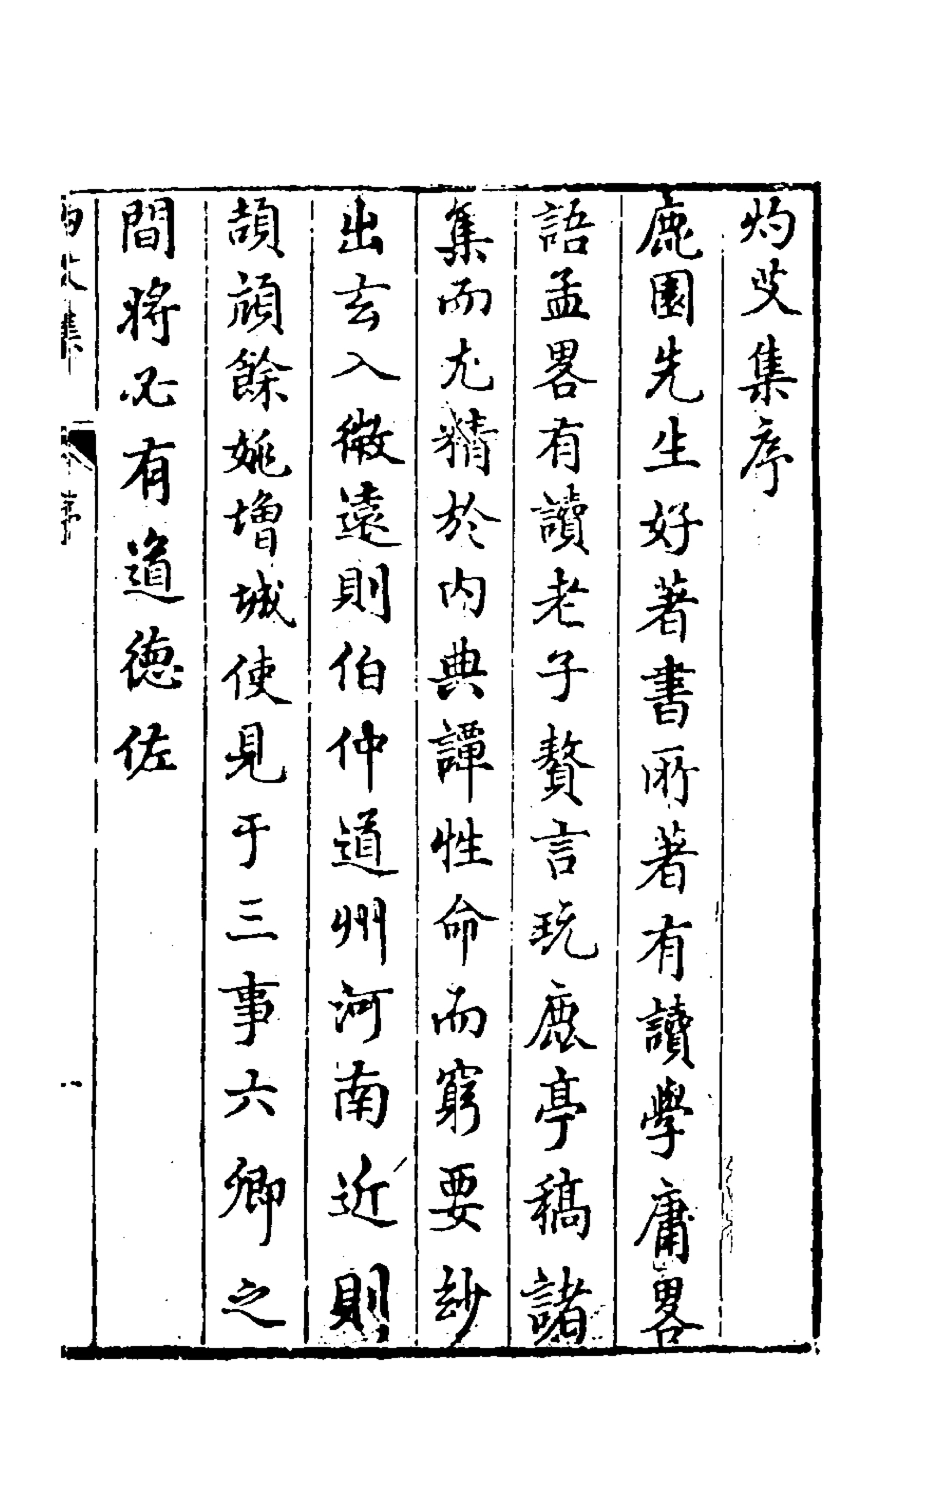 灼艾集序
鹿園先生好著書所著有讀學庸畧
語孟畧有讀老子贅言玩鹿亭稿諸
集而尤精於內典譚性命而窮要玅
出玄入微遠則伯仲道州河南近則
頡頏餘姚增城使見于三事六卿之
間將必有道德佐